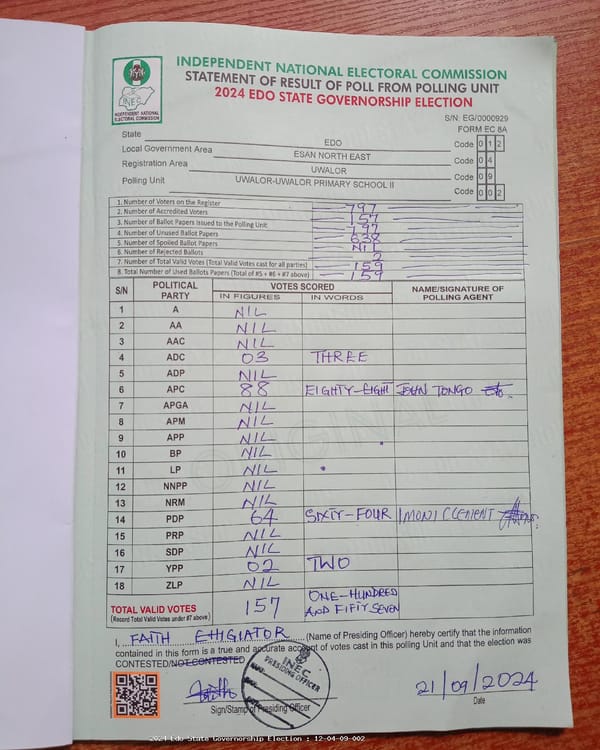 INDEPENDENT NATIONAL ELECTORAL COMMISSION
STATEMENT OF RESULT OF POLL FROM POLLING UNIT
2024 EDO STATE GOVERNORSHIP ELECTION
INEC
INDEPENDENT NATIONAL
ELECTORAL COMMISSION
S/N: EG/0000929
FORM EC 8A
State EDO Code 0 1 2
Local Government Area ESAN NORTH EAST Code 0 4
Registration Area UWALOR Code 0 9
Polling Unit UWALOR-UWALOR PRIMARY SCHOOL II Code 0 0 2
1. Number of Voters on the Register 797
2. Number of Accredited Voters 157
3. Number of Ballot Papers Issued to the Polling Unit 797
4. Number of Unused Ballot Papers 638
5. Number of Spoiled Ballot Papers NIL
6. Number of Rejected Ballots 2
7. Number of Total Valid Votes (Total Valid Votes cast for all parties) 159
8. Total Number of Used Ballots Papers (Total of #5 + #6 + #7 above) 159
S/N POLITICAL PARTY VOTES SCORED NAME/SIGNATURE OF POLLING AGENT
IN FIGURES IN WORDS
1 A NIL
2 AA NIL
3 AAC NIL
4 ADC 03 THREE
5 ADP NIL
6 APC 88 EIGHTY-EIGHT JOHN TONGO
7 APGA NIL
8 APM NIL
9 APP NIL
10 BP NIL
11 LP NIL
12 NNPP NIL
13 NRM NIL
14 PDP 64 SIXTY-FOUR IMONI CLEMENT
15 PRP NIL
16 SDP NIL
17 YPP 02 TWO
18 ZLP NIL
TOTAL VALID VOTES 157 ONE-HUNDRED AND FIFTY SEVEN
(Record Total Valid Votes under #7 above)
I, FAITH EHIGIATOR (Name of Presiding Officer) hereby certify that the information
contained in this form is a true and accurate account of votes cast in this polling Unit and that the election was
CONTESTED/NOT CONTESTED
INEC
PRESIDING OFFICER
21/09/2024
Sign/Stamp of Presiding Officer Date
2024 Edo State Governorship Election : 12-04-09-002